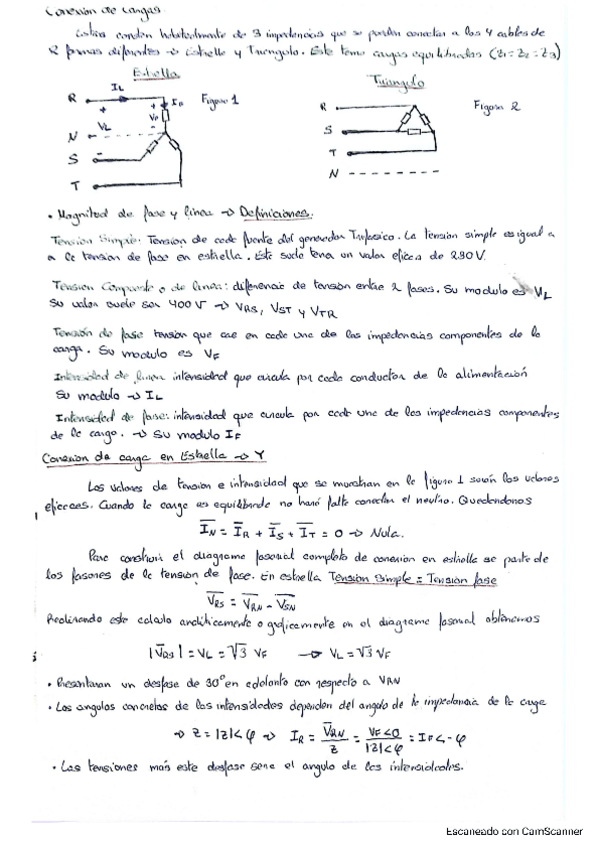 Conexión de Cargas
Estas constan habitualmente de 3 impedancias que se pueden conectar a los 4 cables de
2 formas diferentes → Estrella y Triangulo. Este tema cargas equilibradas (Z1 = Z2 = Z3)
Estrella
Triangulo
R IL IF Figura 1
R Figura 2
VL VF
N
S
T
S
T
N
• Magnitud de fase y linea → Definiciones:
Tensión Simple: Tensión de cada fuente del generador Trifasico. La tensión simple es igual a
a la tensión de fase en estrella. Este suele tener un valor eficaz de 230 V.
Tensión Compuesta o de linea: diferencia de tensión entre 2 fases. Su modulo es VL
Su valor suele ser 400 V → VRS, VST y VTR
Tensión de fase tensión que cae en cada una de las impedancias componentes de la
carga. Su modulo es VF
Intensidad de linea intensidad que circula por cada conductor de la alimentación
Su modulo → IL
Intensidad de fase: intensidad que circula por cada una de las impedancias componentes
de la carga. → Su modulo IF
Conexión de carga en Estrella → Y
Los valores de tensión e intensidad que se muestran en la figura 1 serán los valores
eficaces. Cuando la carga es equilibrada no hará falta conectar el neutro. Quedandonos
I̅N = I̅R + I̅S + I̅T = 0 → Nula.
Para construir el diagrama fasorial completo de conexión en estrella se parte de
los fasores de la tensión de fase. En estrella Tensión Simple = Tensión fase
V̅RS = V̅RN - V̅SN
Realizando este calculo analíticamente o graficamente en el diagrama fasorial obtenemos
|V̅RS| = VL = √3 VF → VL = √3 VF
• Presentaran un desfase de 30° en adelanto con respecto a VRN
• Los angulos concretos de las intensidades dependen del angulo de la impedancia de la carga
→ Z = |Z|<φ → IR = V̅RN / Z = VF<0 / |Z|<φ = IF<-φ
• Las tensiones más este desfase sera el angulo de las intensidades.
Escaneado con CamScanner